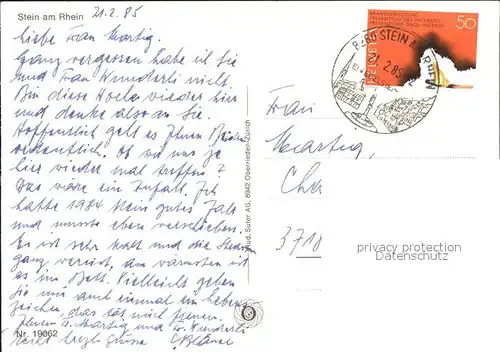 Stein am Rhein
21.2.85
Liebe Frau Martig.
Ganz vergessen habe ich Sie
und Frau Wunderli nicht.
Bin diese Woche wieder hier
und denke also an Sie.
Hoffentlich geht es Ihnen Beiden
ordentlich. Ob wir uns je
hier wieder mal treffen?
Das wäre ein Zufall. Ich
hatte 1984 kein gutes Jahr
und musste eben verschieben.
Es ist sehr kalt und die Strassen
ganz vereist, am wärmsten ist
es im Bett. Vielleicht geben
Sie mir auch einmal ein Lebens-
zeichen, das tät mich freuen.
Ihnen Fr. Martig und Fr. Wunderli
recht herzl. Grüsse
Nr. 19062
Rud. Suter AG, 8942 Oberrieden-Zürich
8260 STEIN AM RHEIN
21.2.85
50
HELVETIA
BRANDVERHÜTUNG
Frau
Martig,
3718
privacy protection
Datenschutz